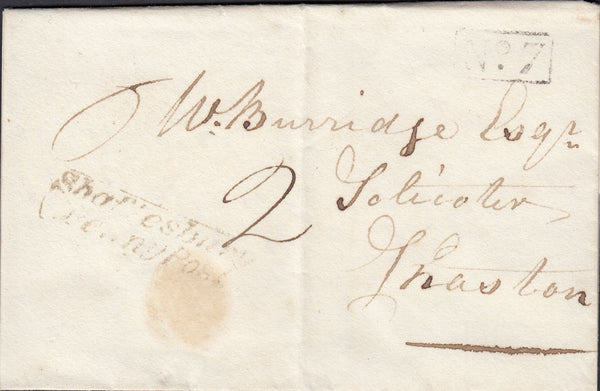 No. 7
Wm. Burridge Esqr
2 Solicitor
Shaston
Shaftesbury
Penny Post